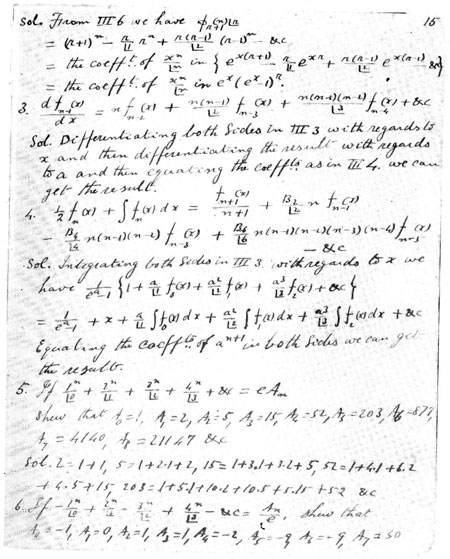 15
Sol. From III 6 we have φ_{r+1}(n) ⌊r
= (r+1)^n − r/⌊1 r^n + r(r−1)/⌊2 (r−1)^n − &c
= the coefft. of x^n/⌊n in { e^{x(r+1)} − r/⌊1 e^{xr} + r(r−1)/⌊2 e^{x(r−1)} − &c }
= the coefft. of x^n/⌊n in e^x (e^x − 1)^r.
3. d f_{n-1}(x)/dx = n f_{n-2}(x) + n(n−1)/⌊2 f_{n-3}(x) + n(n−1)(n−2)/⌊3 f_{n-4}(x) + &c
Sol. Differentiating both Sides in III 3 with regards to
x and then differentiating the result with regards
to a and then equating the coeffts as in III 4. we can
get the result.
4. ½ f_n(x) + ∫ f_n(x) dx = f_{n+1}(x)/n+1 + B_2/⌊2 n f_{n-1}(x)
− B_4/⌊4 n(n−1)(n−2) f_{n-3}(x) + B_6/⌊6 n(n−1)(n−2)(n−3)(n−4) f_{n-5}(x)
− &c
Sol. Integrating both Sides in III 3 with regards to x we
have 1/(e^a−1) { 1 + a/⌊1 f_0(x) + a²/⌊2 f_1(x) + a³/⌊3 f_2(x) + &c }
= 1/(e^a−1) + x + a/⌊1 ∫ f_0(x) dx + a²/⌊2 ∫ f_1(x) dx + a³/⌊3 ∫ f_2(x) dx + &c
Equating the coeffts of a^{n+1} in both Sides we can get
the result.
5. If 1^n/⌊0 + 2^n/⌊1 + 3^n/⌊2 + 4^n/⌊3 + &c = e A_n
shew that A_0=1, A_1=2, A_2=5, A_3=15, A_4=52, A_5=203, A_6=877,
A_7=4140, A_8=21147 &c
Sol. 2=1+1, 5=1+2.1+2, 15=1+3.1+3.2+5, 52=1+4.1+6.2
+4.5+15, 203=1+5.1+10.2+10.5+5.15+52 &c
6. If −1^n/⌊0 + 2^n/⌊1 − 3^n/⌊2 + 4^n/⌊3 − &c = A_n/e, shew that
A_0=−1, A_1=0, A_2=1, A_3=1, A_4=−2, A_5=−9, A_6=−9, A_7=50